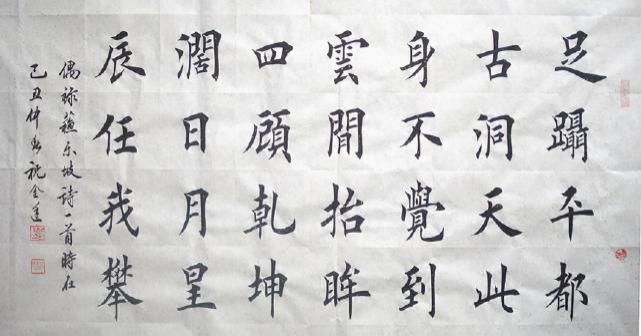 足躡平都
古洞天此
身不覺到
雲間抬眸
四顧乾坤
濶日月星
辰任我攀
偶錄蘇东坡詩一首時在
己丑仲春祝